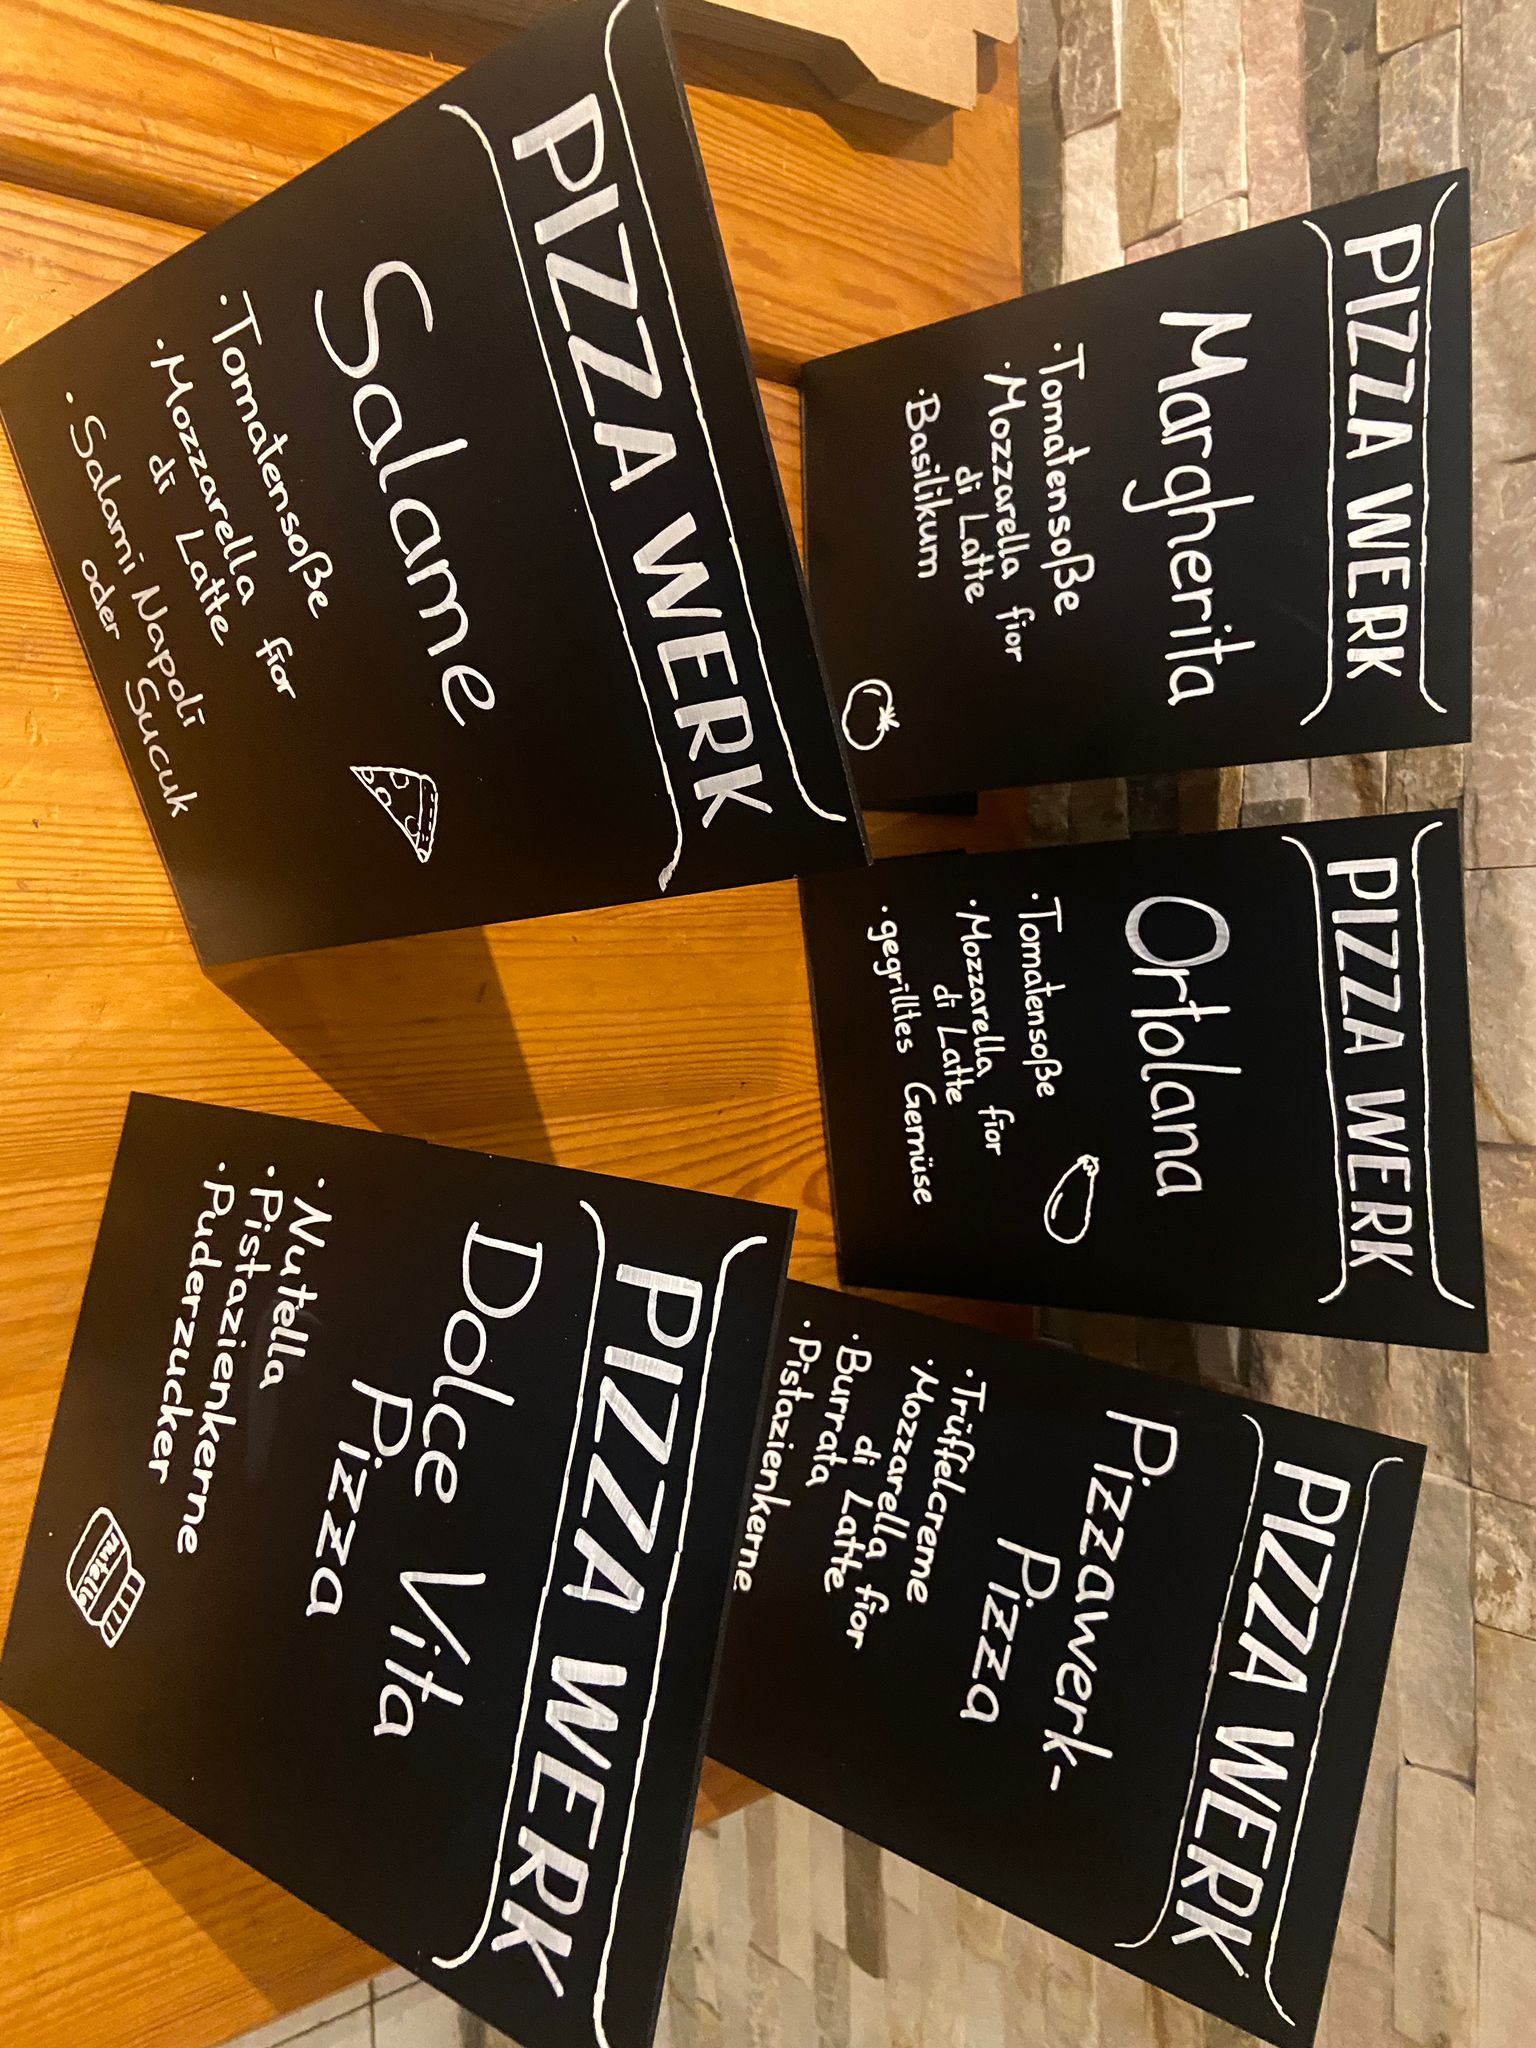 PIZZA WERK
Margherita
·Tomatensoße
·Mozzarella fior
di Latte
·Basilikum
PIZZA WERK
Ortolana
·Tomatensoße
·Mozzarella fior
di Latte
·gegrilltes Gemüse
PIZZA WERK
Pizzawerk-
Pizza
·Trüffelcreme
·Mozzarella fior
di Latte
·Burrata
·Pistazienkerne
PIZZA WERK
Salame
·Tomatensoße
·Mozzarella fior
di Latte
·Salami Napoli
oder Sucuk
PIZZA WERK
Dolce Vita
Pizza
·Nutella
·Pistazienkerne
·Puderzucker
nutella